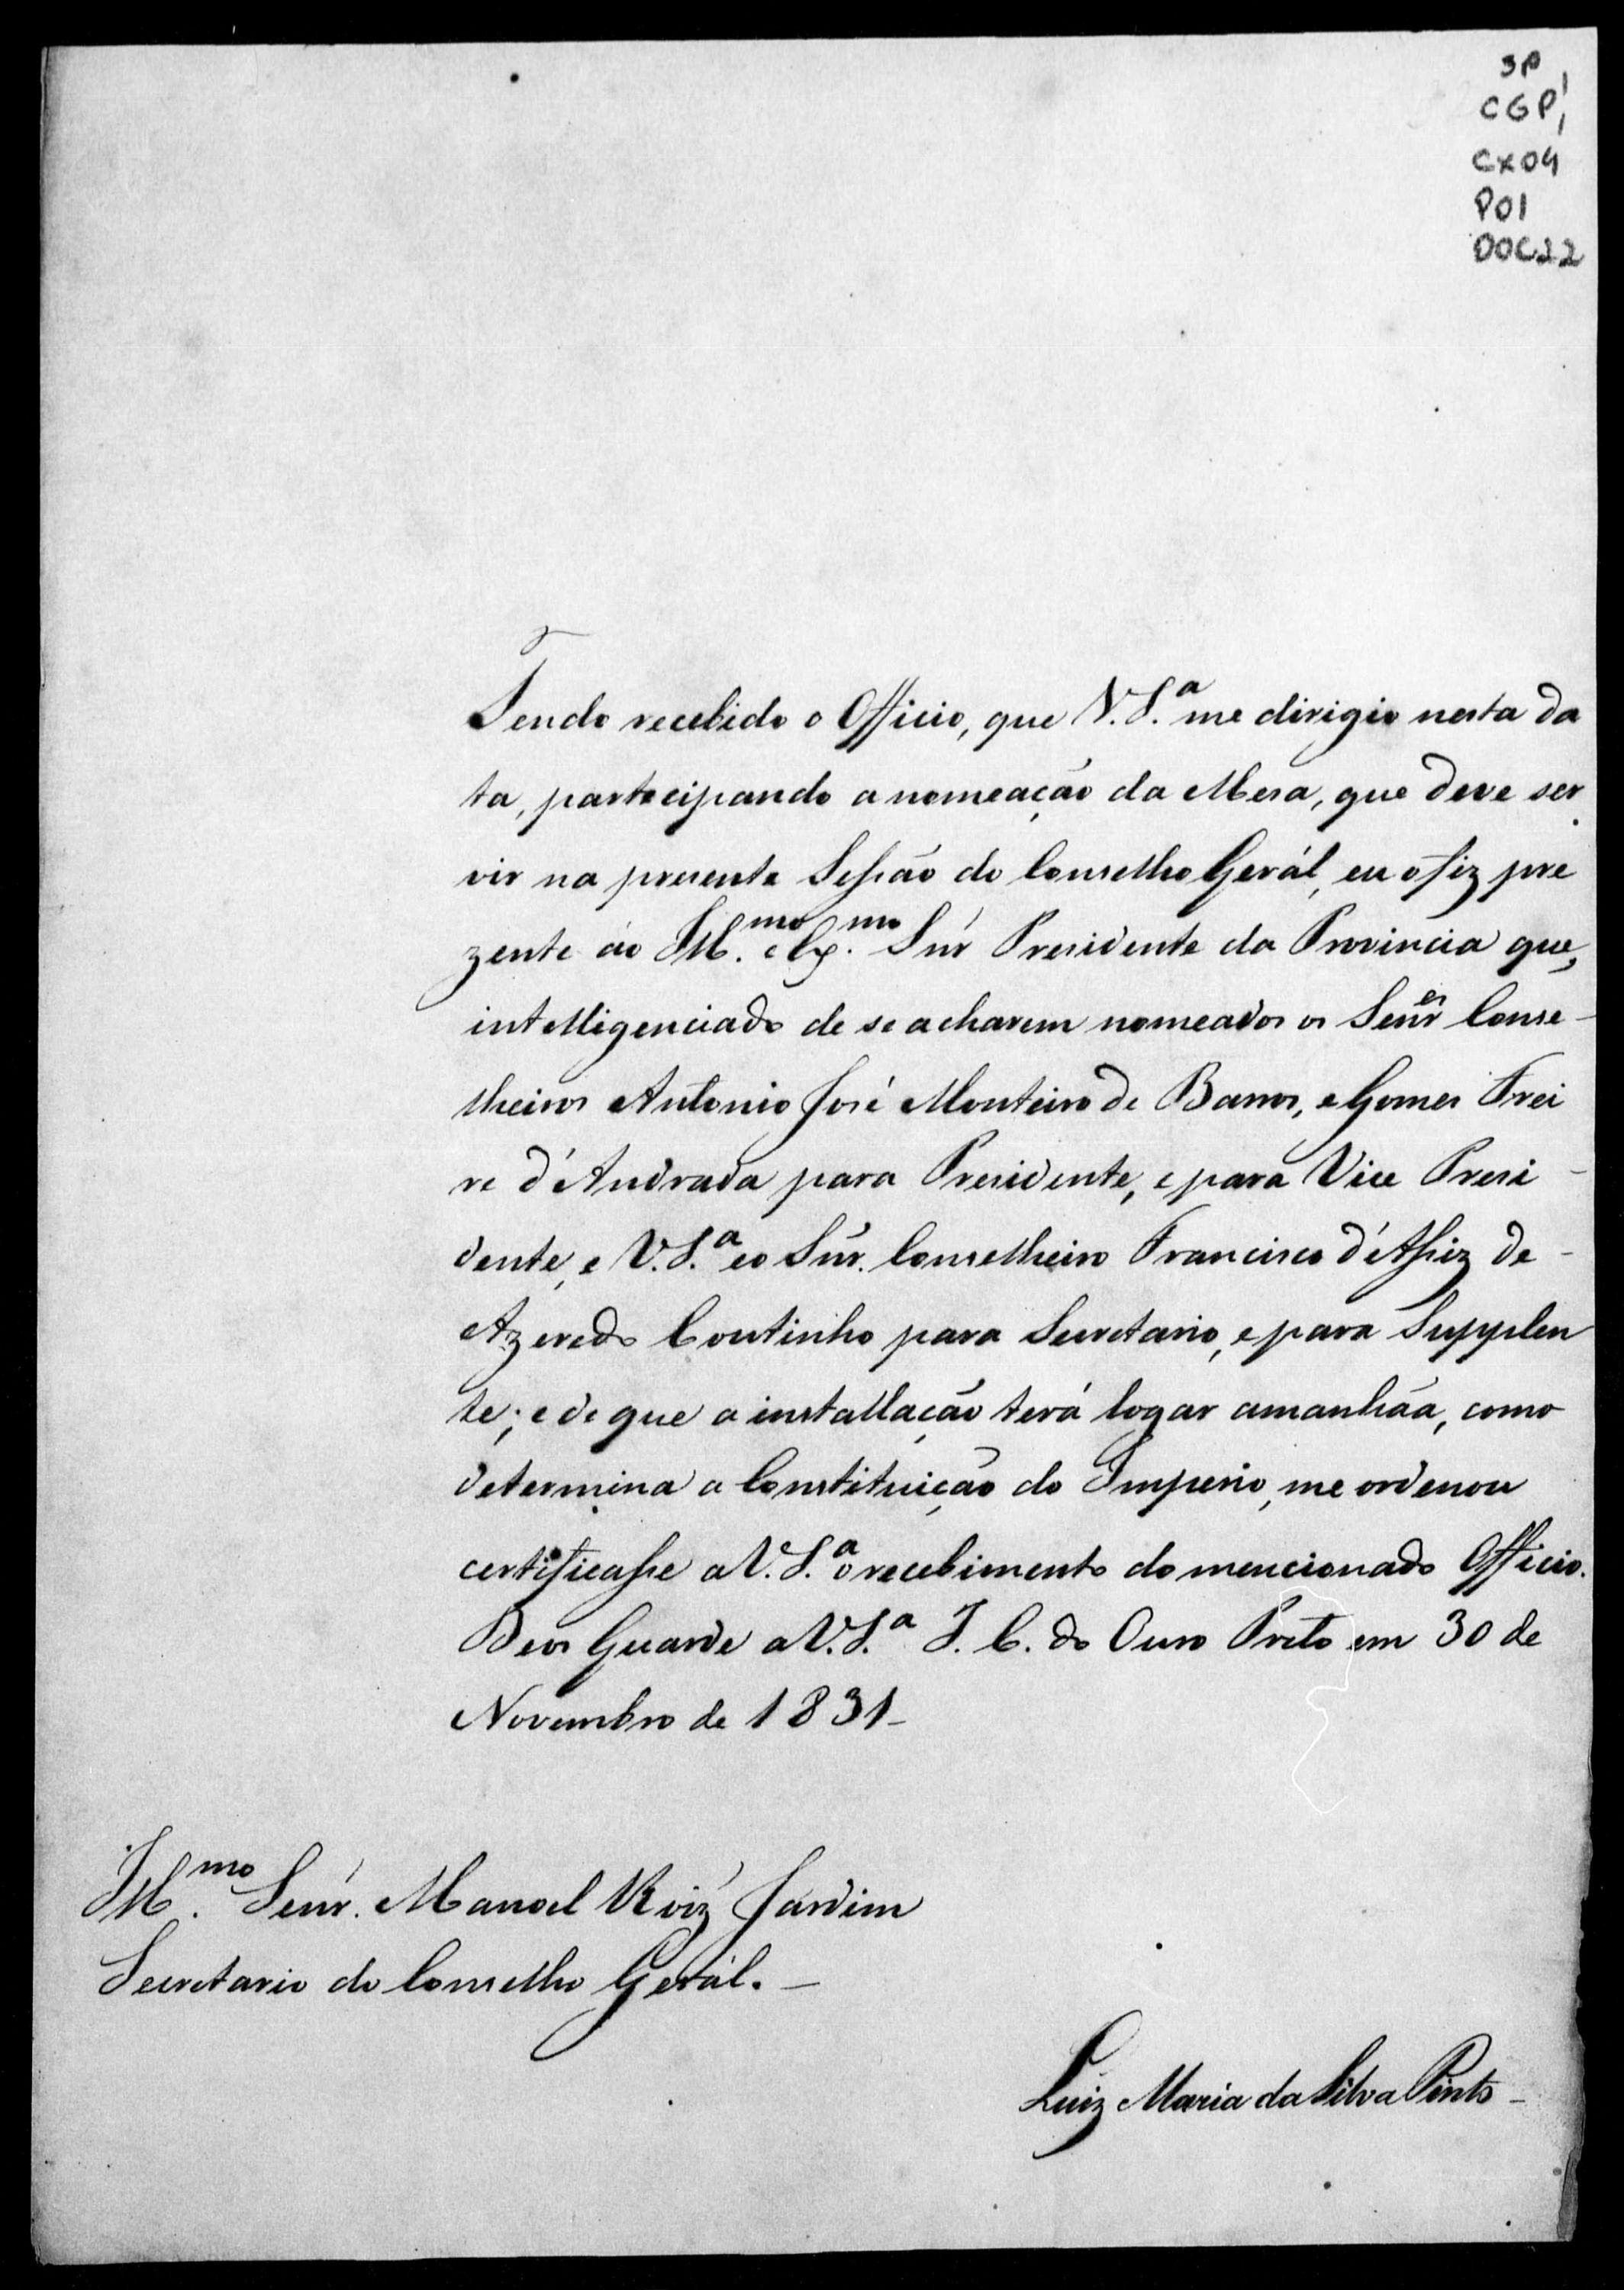 SP
CGP1
CX04
P01
DOC22
Tendo recebido o Officio, que V.S.ª me dirigio nesta da
ta, partecipando a nomeação da Mesa, que deve ser
vir na presente Sessão do Conselho Gerál, eu o fiz pre
zente ao Ill.mo e Ex.mo Snr Presidente da Provincia que,
intelligenciado de se acharem nomeados os Senr.es Conse-
lheiros Antonio José Monteiro de Barros, e Gomes Frei
re d'Andrada para Presidente, e para Vice Presi-
dente, e V.S.ª e o Snr. Conselheiro Francisco d'Assiz de-
Azeredo Coutinho para Secretario, e para Supplen
te; e de que a installação terá logar amanhãa, como
determina a Constituição do Imperio, me ordenou
certificasse a V.S.ª o recebimento do mencionado Officio.
Deos Guarde a V.S.ª I. C. do Ouro Preto em 30 de
Novembro de 1831-
Ill.mo Senr. Manoel Roiz Jardim
Secretario do Conselho Gerál.-
Luiz Maria da Silva Pinto-